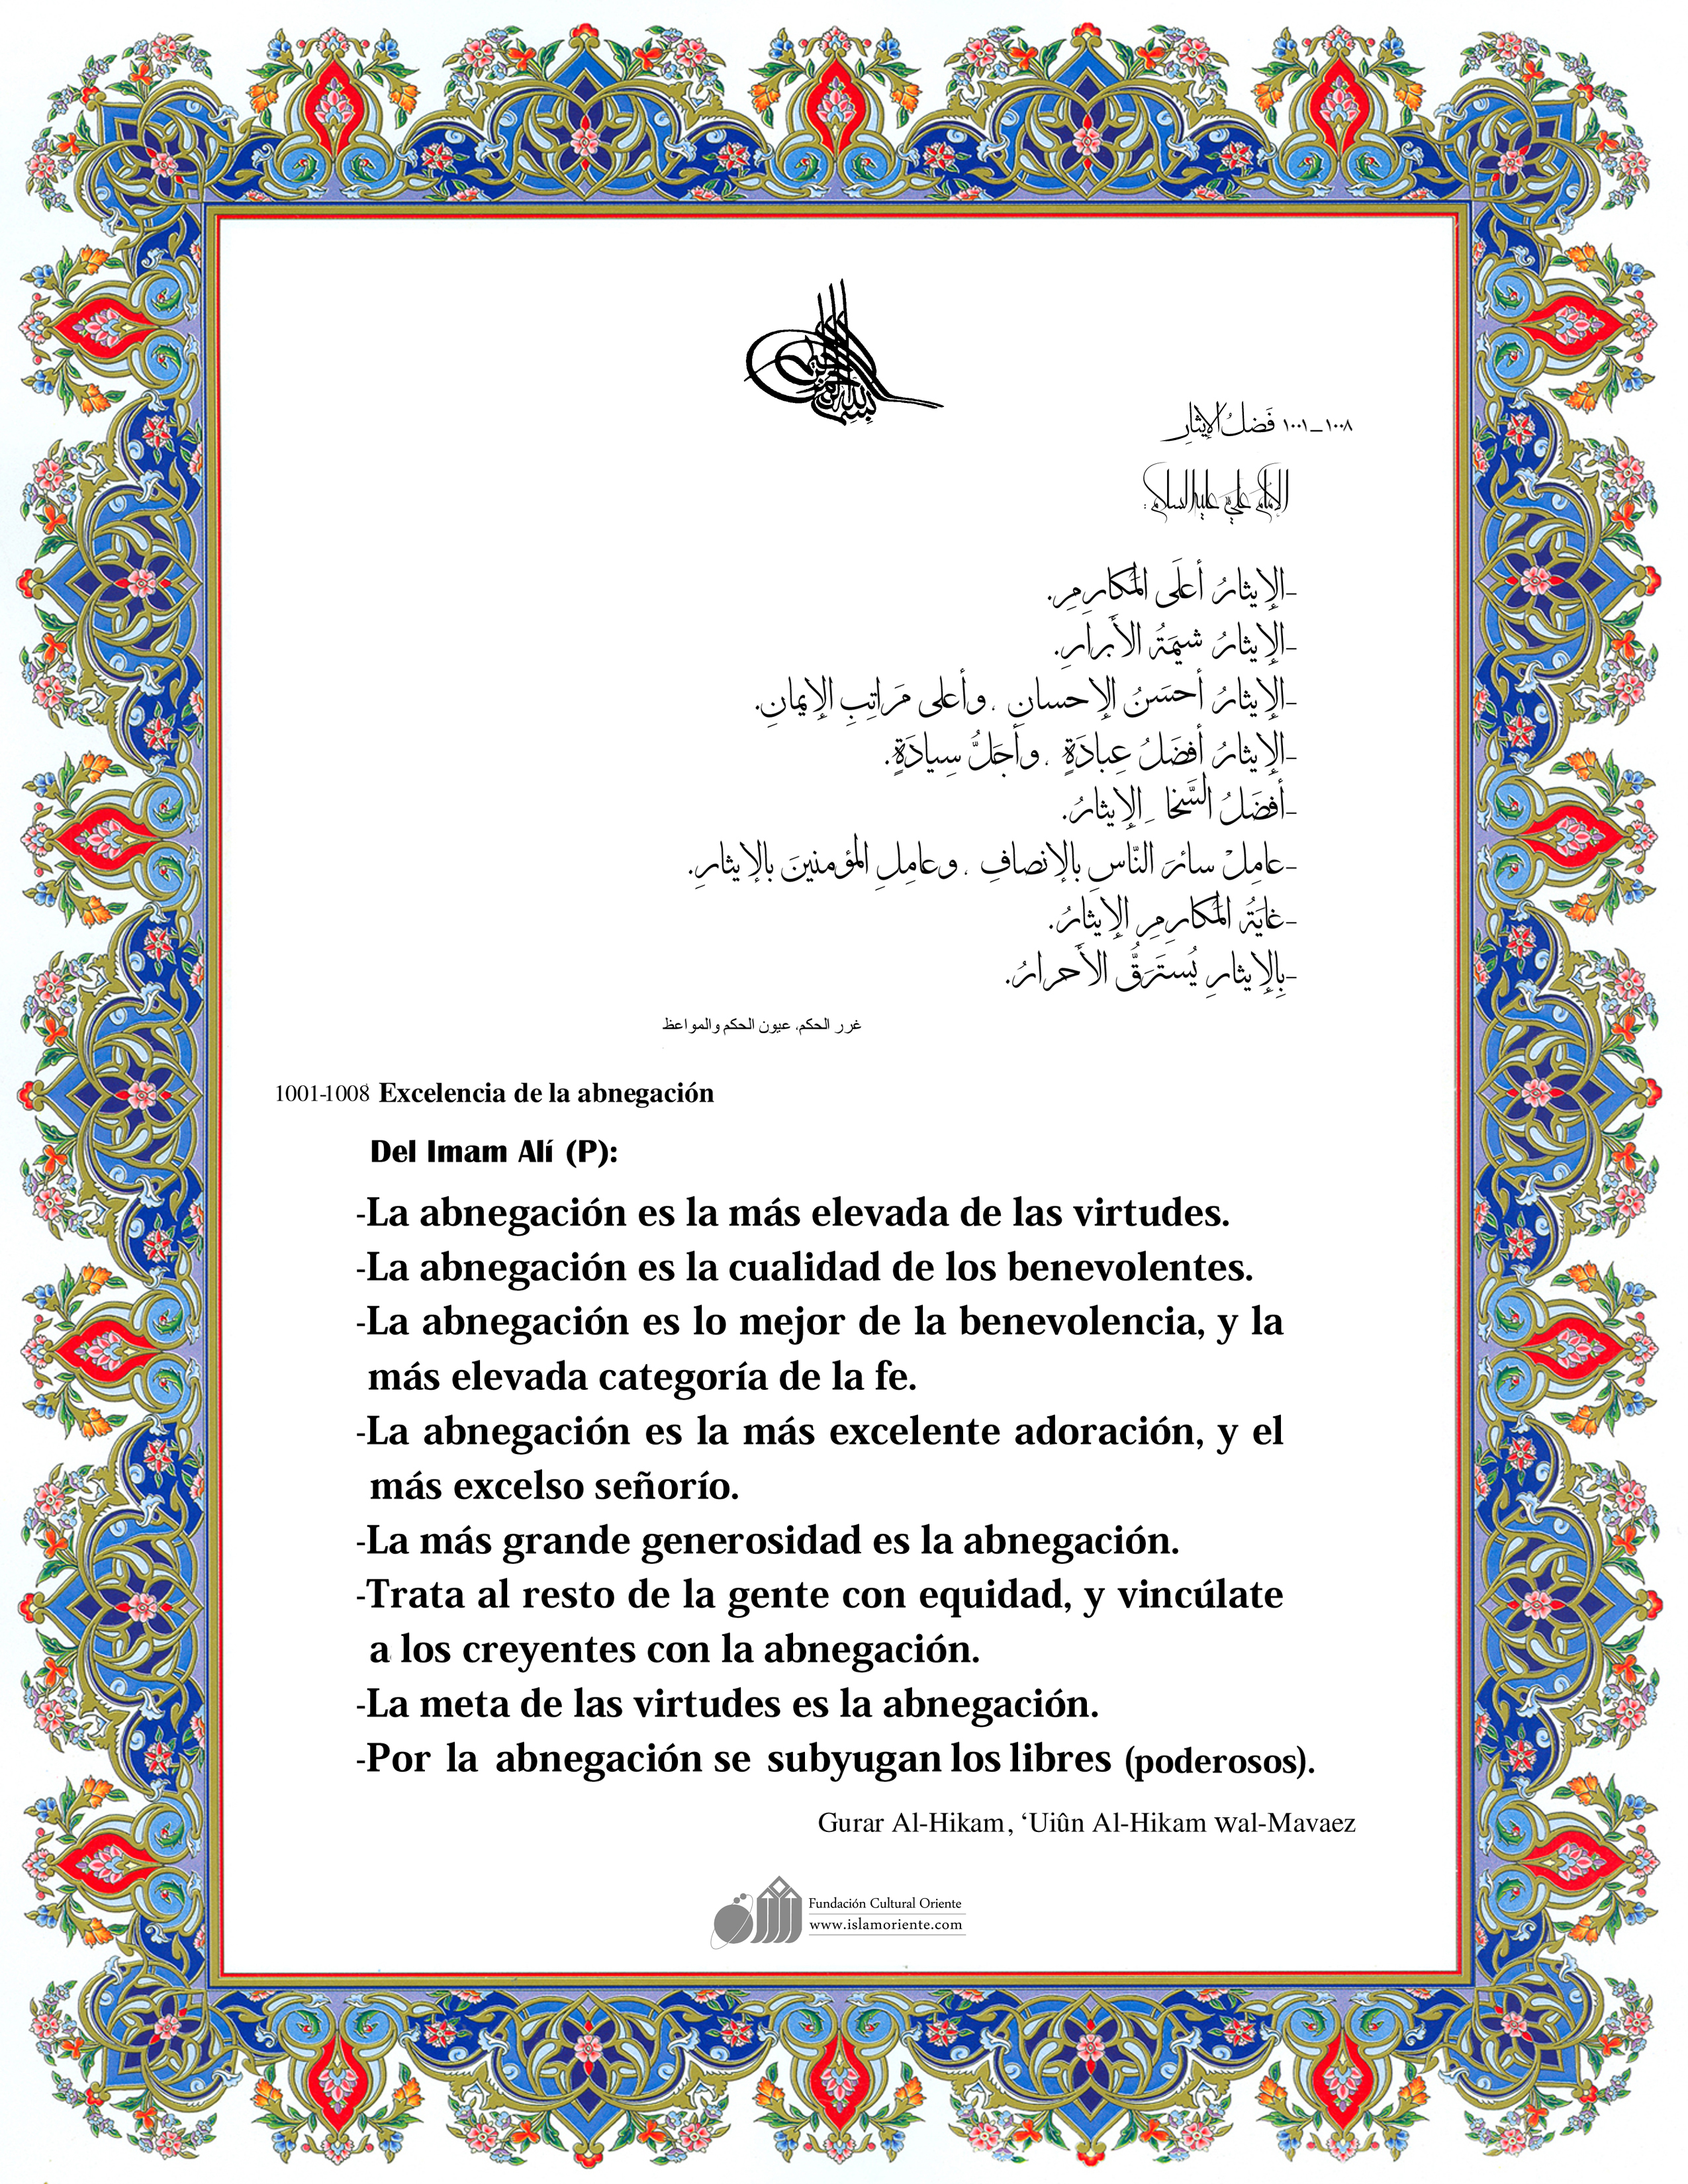 ١٠٠١_١٠٠٨ فَضلُ الإيثارِ
الإمامُ عليٌّ عليه السلام :
-الإيثارُ أعلَى المَكارِمِ.
-الإيثارُ شيمَةُ الأبرارِ.
-الإيثارُ أحسَنُ الإحسانِ ، وأعلى مَراتِبِ الإيمانِ.
-الإيثارُ أفضَلُ عِبادَةٍ ، وأجَلُّ سِيادَةٍ.
-أفضَلُ السَّخا ِ الإيثارُ.
-عامِلْ سائرَ النّاسِ بالإنصافِ ، وعامِلِ المؤمنينَ بالإيثارِ.
-غايَةُ المَكارِمِ الإيثارُ.
-بِالإيثارِ يُستَرَقُّ الأحرارُ.
غرر الحكم، عيون الحكم والمواعظ
1001-1008 Excelencia de la abnegación
Del Imam Alí (P):
-La abnegación es la más elevada de las virtudes.
-La abnegación es la cualidad de los benevolentes.
-La abnegación es lo mejor de la benevolencia, y la
más elevada categoría de la fe.
-La abnegación es la más excelente adoración, y el
más excelso señorío.
-La más grande generosidad es la abnegación.
-Trata al resto de la gente con equidad, y vincúlate
a los creyentes con la abnegación.
-La meta de las virtudes es la abnegación.
-Por la abnegación se subyugan los libres (poderosos).
Gurar Al-Hikam, ‘Uiûn Al-Hikam Wal-Mavaez
Fundación Cultural Oriente
www.islamoriente.com